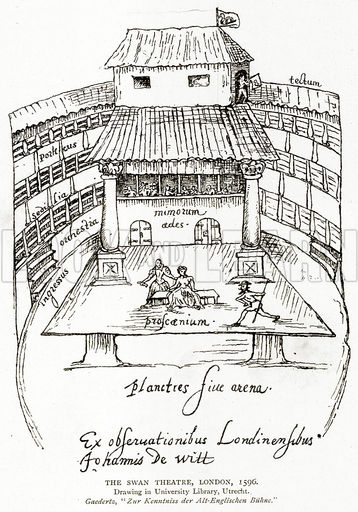 tectum
porticus
sedilia
orchestra
mimorum
ædes.
ingressus
proscænium.
planities siue arena.
Ex obseruationibus Londinensibus
Johannis De Witt
THE SWAN THEATRE, LONDON, 1596.
Drawing in University Library, Utrecht.
Gaedertz, "Zur Kenntniss der Alt-Englischen Bühne."